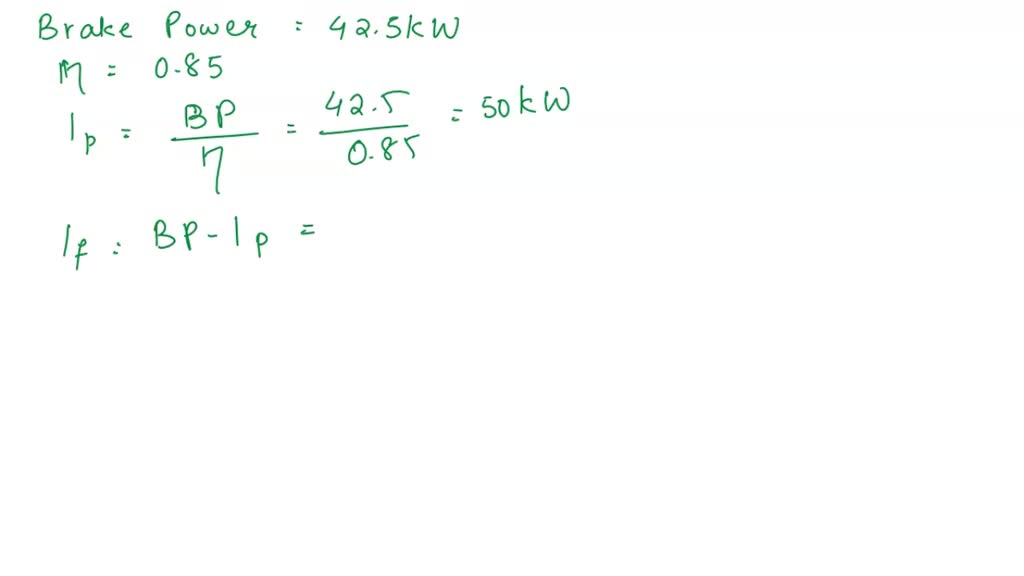 Brake Power : 42.5kW
η = 0.85
Ip = BP/η = 42.5/0.85 = 50kW
If : BP - Ip =